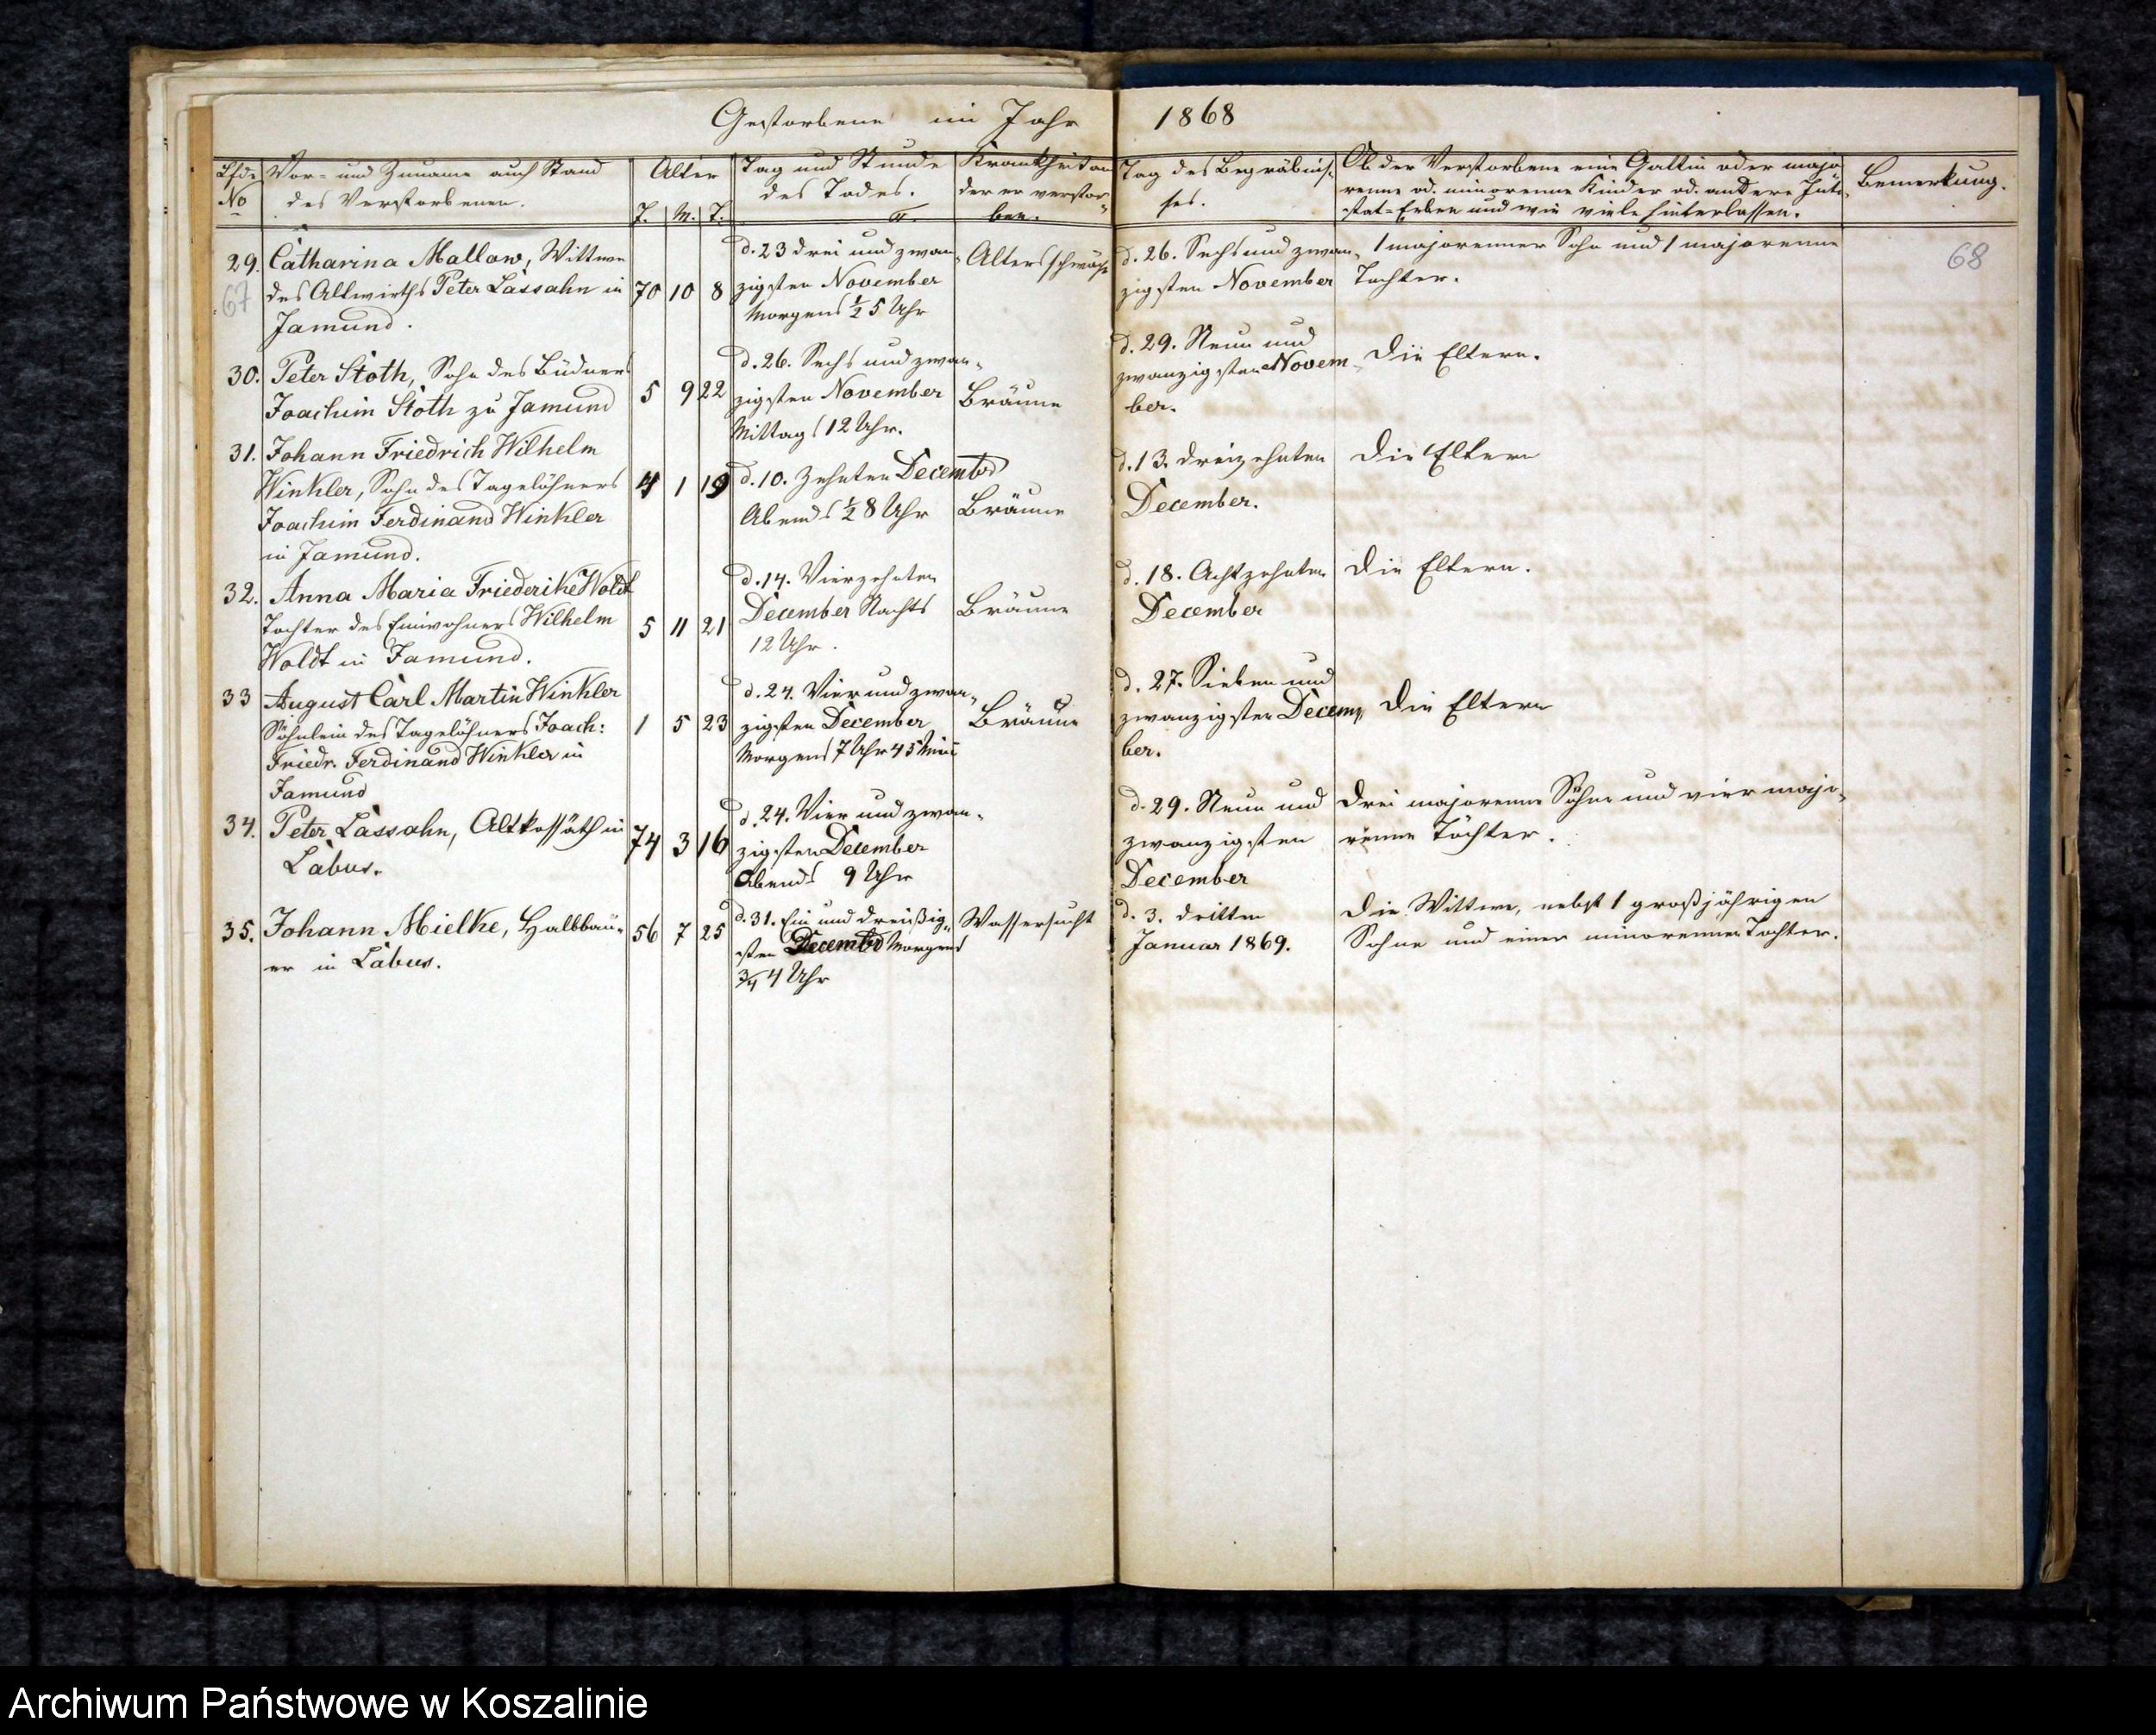 Gestorbene im Jahr 1868
Lfde No
Vor- und Zuname auch Stand
des Verstorbenen.
Alter
J. M. T.
Tag und Stunde
des Todes.
Krankheit an
der er verstor-
ben.
Tag des Begräbnis-
ses.
Ob der Verstorbene eine Gattin oder majo-
renne od. minorenne Kinder od. andere Inte-
stat-Erben und wie viele hinterlassen.
Bemerkung.
67
68
29. Catharina Mallow, Wittwe
des Altwirths Peter Lassahn in
Jamund.
70 10 8
d. 23 drei und zwan-
zigsten November
Morgens ½ 5 Uhr
Altersschwäche
d. 26. Sechs und zwan-
zigsten November
1 majorenner Sohn und 1 majorenne
Tochter.
30. Peter Stoth, Sohn des Büdners
Joachim Stoth zu Jamund
5 9 22
d. 26. Sechs und zwan-
zigsten November
Mittags 12 Uhr.
Bräune
d. 29. Neun und
zwanzigsten Novem-
ber.
Die Eltern.
31. Johann Friedrich Wilhelm
Winkler, Sohn des Tagelöhners
Joachim Ferdinand Winkler
in Jamund.
4 1 19
d. 10. Zehnten Decembr
Abends ½ 8 Uhr
Bräune
d. 13. dreizehnten
December.
Die Eltern
32. Anna Maria Friederike Woldt
Tochter des Einwohners Wilhelm
Woldt in Jamund.
5 11 21
d. 14. Vierzehnten
December Nachts
12 Uhr.
Bräune
d. 18. Achtzehnten
December
Die Eltern.
33 August Carl Martin Winkler
Söhnlein des Tagelöhners Joach:
Friedr. Ferdinand Winkler in
Jamund
1 5 23
d. 24. Vier und zwan-
zigsten December
Morgens 7 Uhr 45 Min:
Bräune
d. 27. Sieben und
zwanzigsten Decem-
ber.
Die Eltern
34. Peter Lassahn, Altkossäth in
Labus.
74 3 16
d. 24. Vier und zwan-
zigsten December
Abends 9 Uhr
d. 29. Neun und
zwanzigsten
December
Drei majorenne Söhne und vier majo-
renne Töchter.
35. Johann Mielke, Halbbau-
er in Labus.
56 7 25
d. 31. Ein und dreißig-
sten Decembr Morgens
¾ 4 Uhr
Wassersucht
d. 3. dritten
Januar 1869.
Die Wittwe, nebst 1 großjährigen
Sohne und einer minorennen Tochter.
Archiwum Państwowe w Koszalinie